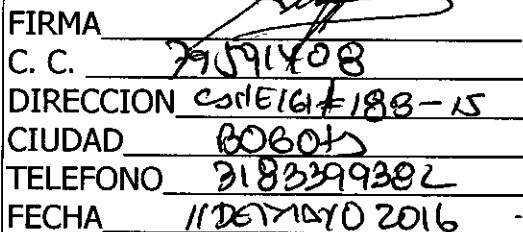 FIRMA
C. C. 79591408
DIRECCION CALLE 161 # 18B-15
CIUDAD BOGOTA
TELEFONO 3183399382
FECHA 11 DE MAYO 2016